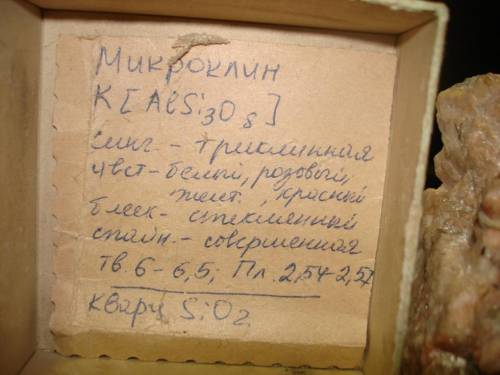 Микроклин
K[AlSi3O8]
синг. - триклинная
цвет - белый, розовый,
желт., красный
блеск - стеклянный
спайн. - совершенная
тв. 6 - 6,5; Пл. 2,54-2,57
кварц SiO2